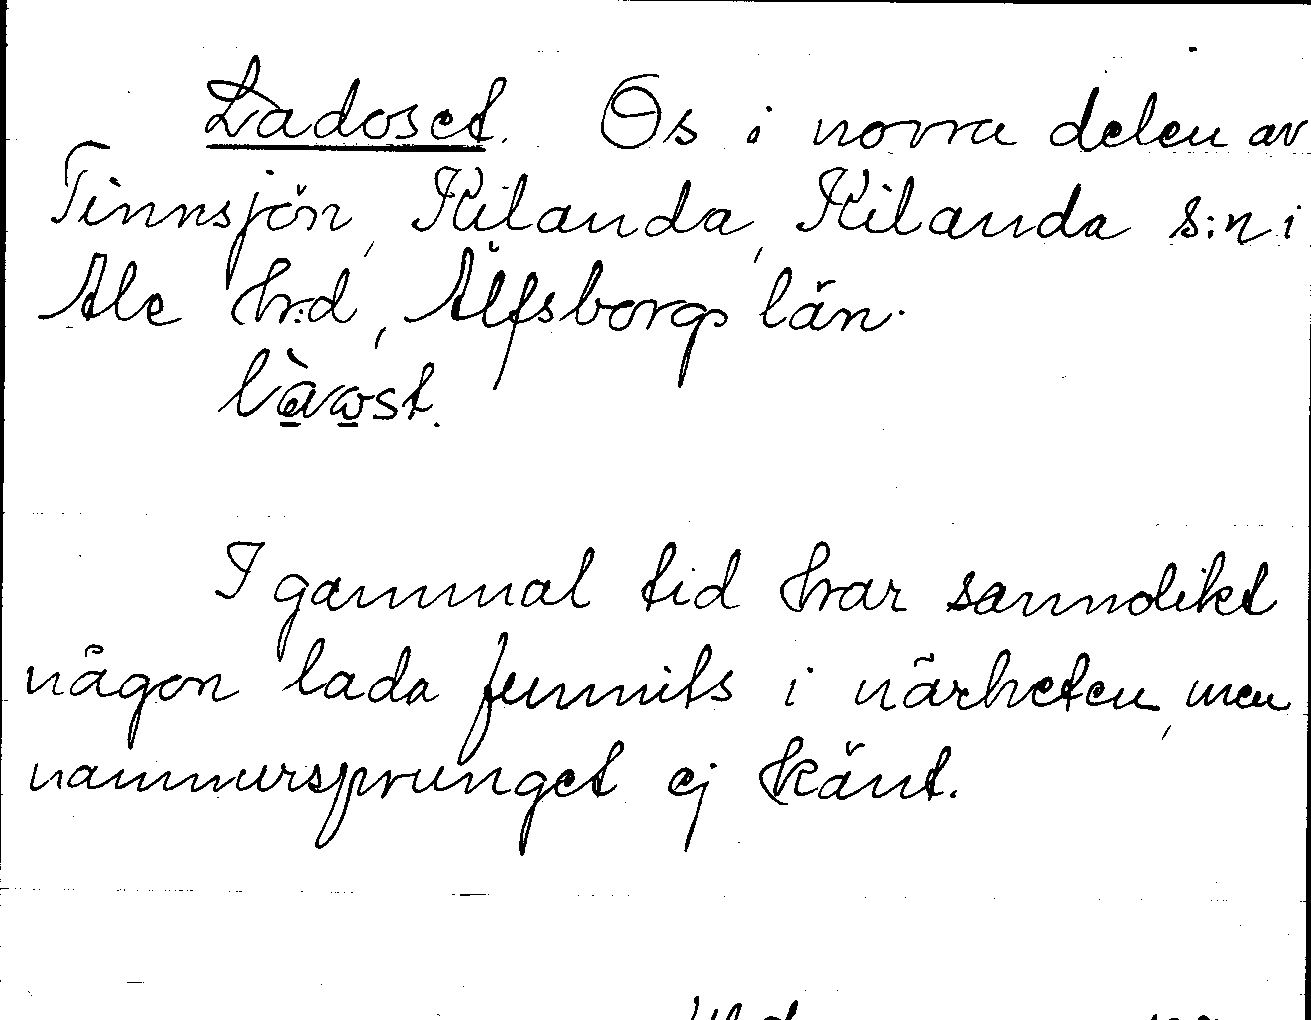 Ladoset. Os i norra delen av
Tinnsjön, Kilanda, Kilanda s:n i
Ale hr:d, Älfsborgs län.
I gammal tid har sannolikt
någon lada funnits i närheten, men
namnursprunget ej känt.